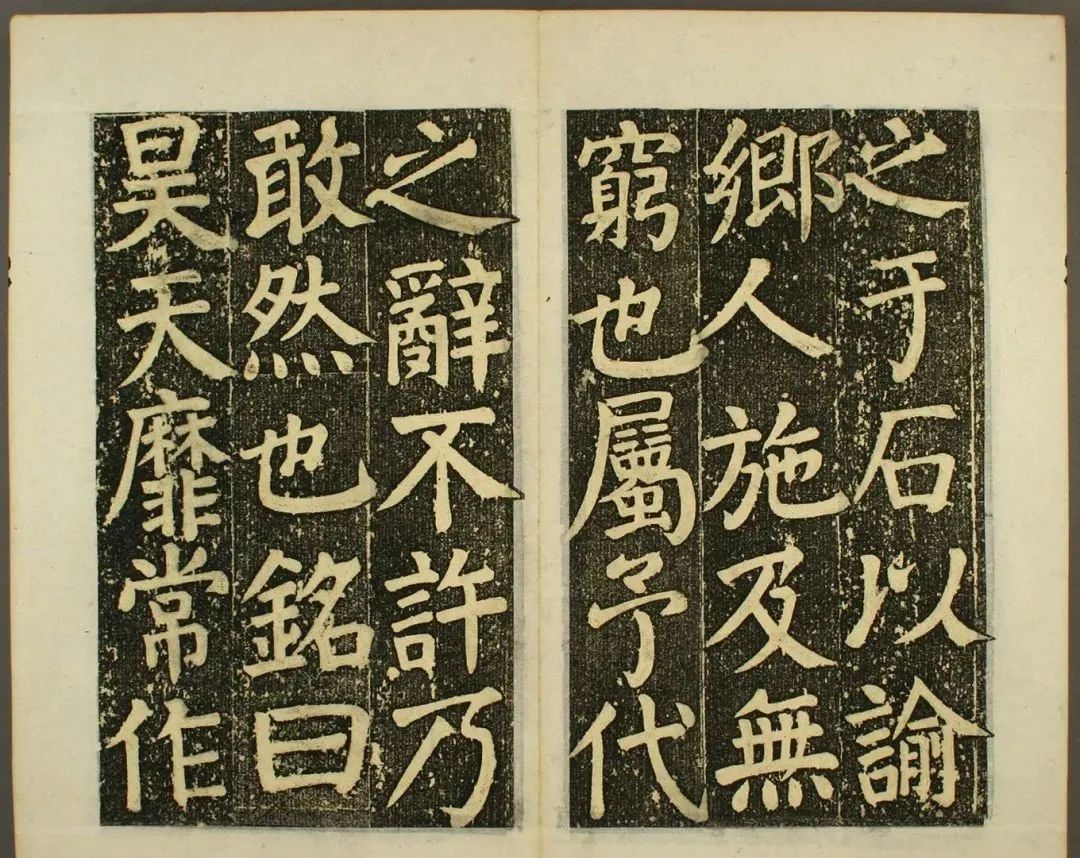 之于石以諭
鄉人施及無
窮也屬予代
之辭不許乃
敢然也銘曰
昊天靡常作